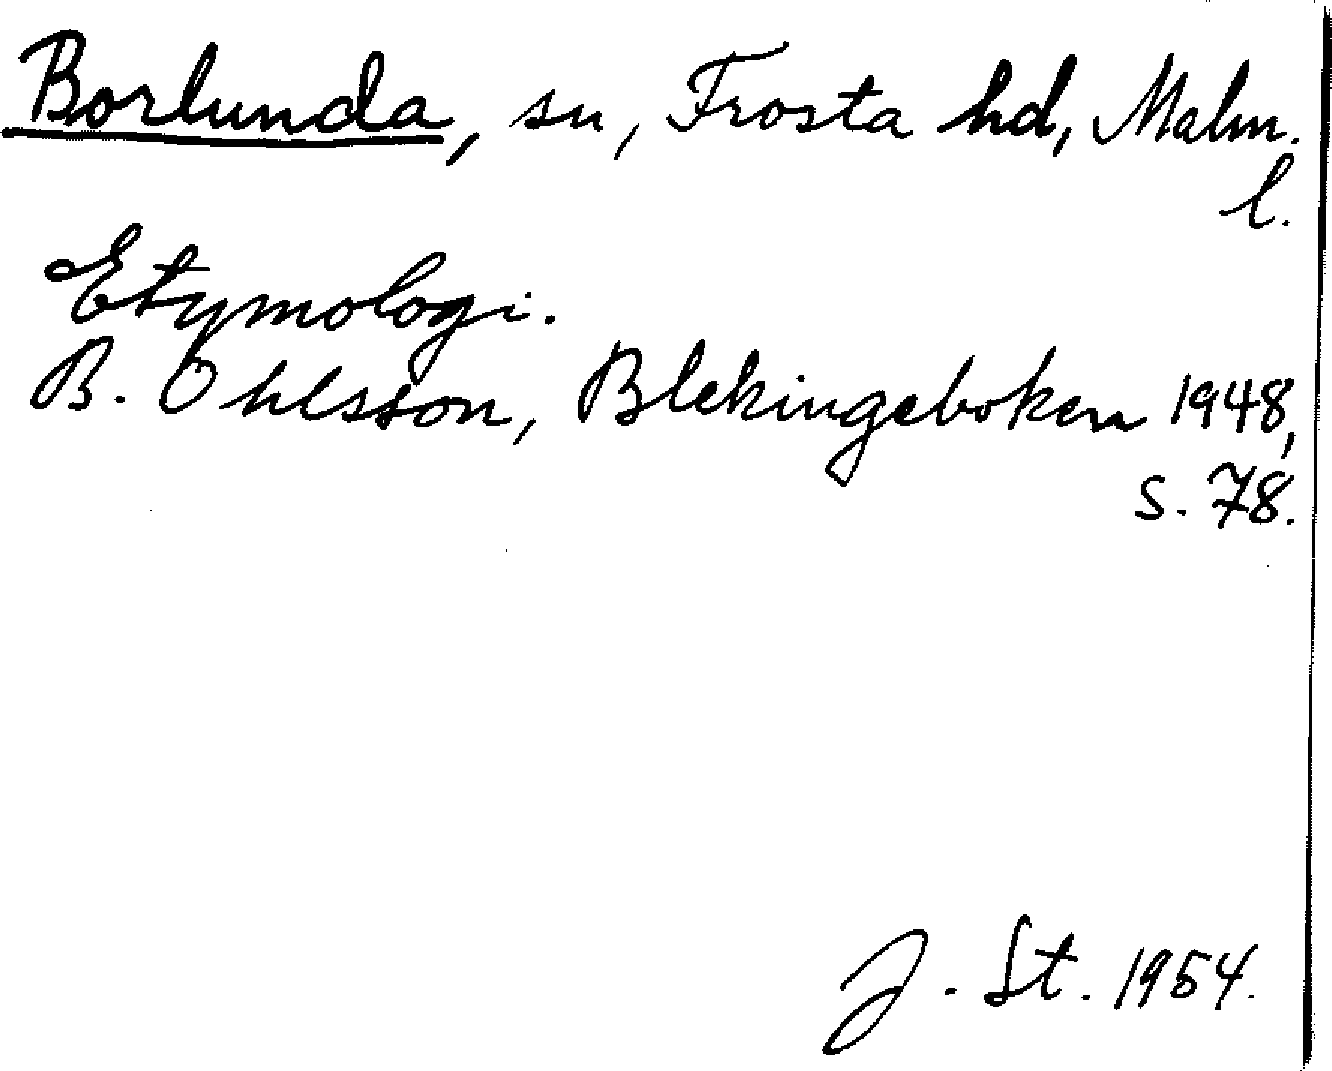 Borlunda, sn, Frosta hd, Malm.
l.
Etymologi.
B. Ohlsson, Blekingeboken 1948,
s. 78.
J. St. 1954.